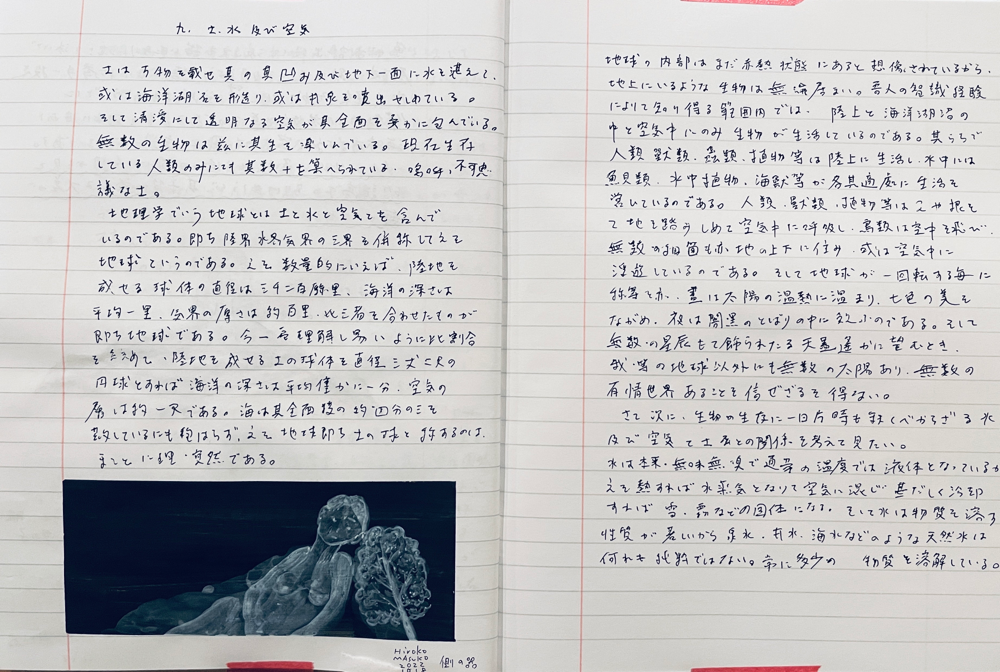 九、土、水 及び 空気
土は万物を載せ真の真凹み及び地下一面に水を湛えて、
或は海洋湖沼を形造り、或は井泉を噴出せしめている。
そして清澄にして透明なる空気が其全面を柔かに包んでいる。
無数の生物は茲に其生を楽しんでいる。現在生存
している人類のみにても其数十七算へられている。嗚呼、不可思
議な土。
地理学でいう地球とは土と水と空気とを含んで
いるのである。即ち陸界水界気界の三界を併称してえを
地球というのである。えを数量的にいえば、陸地を
成せる球体の直径は三千二百余里、海洋の深さは
平均一里、気界の厚さは約百里、此三者を合わせたものが
即ち地球である。今一層理解し易いように比割合
を縮めて、陸地を成せる土の球体を直径三丈二尺の
円球とすれば海洋の深さは平均僅かに一分、空気の
層は約一尺である。海は其全面積の約四分の三を
占しているにも拘はらず、えを地球即ち土の球と称するのは、
まことに理の突然である。
Hiroko
MASUKO
2022
側の器
地球の内部はまだ赤熱状態にあると想像されているから、
地上にいるような生物は無論居ない。吾人の智識経験
によりて知り得る範囲内では、陸上と海洋湖沼の
中と空気中にのみ生物が生活しているのである。其うちで
人類、獣類、蟲類、植物等は陸上に生活し、水中には
魚貝類、水中植物、海獣等が各其適処に生活を
営しているのである。人類、獣類、植物等は足や根を
て地を踏うしめて空気中に呼吸し、鳥類は空中を飛び、
無数の細菌も亦地の上下に住み、或は空気中に
浮遊しているのである。そして地球が一回転する毎に
称等も亦、昼は太陽の温熱に温まり、七色の美を
ながめ、夜は闇黒のとばりの中に憩ふのである。そして
無数の星辰もて飾られたる天蓋遙かに望むとき、
我等の地球以外にも無数の太陽あり、無数の
有情世界あることを信ぜざるを得ない。
さて次に、生物の生存に一日片時も欠くべからざる水
及び空気と土との関係を考えて見たい。
水は本来、無味無臭で適当の温度では液体となっているが
えを熱すれば水蒸気となりて空気に混じ、甚だしく冷却
すれば雪、霜などの固体になる。そして水は物質を溶す
性質が著いから泉水、井水、海水などのような天然水は
何れも純粋ではない。常に多少の 物質を溶解している。